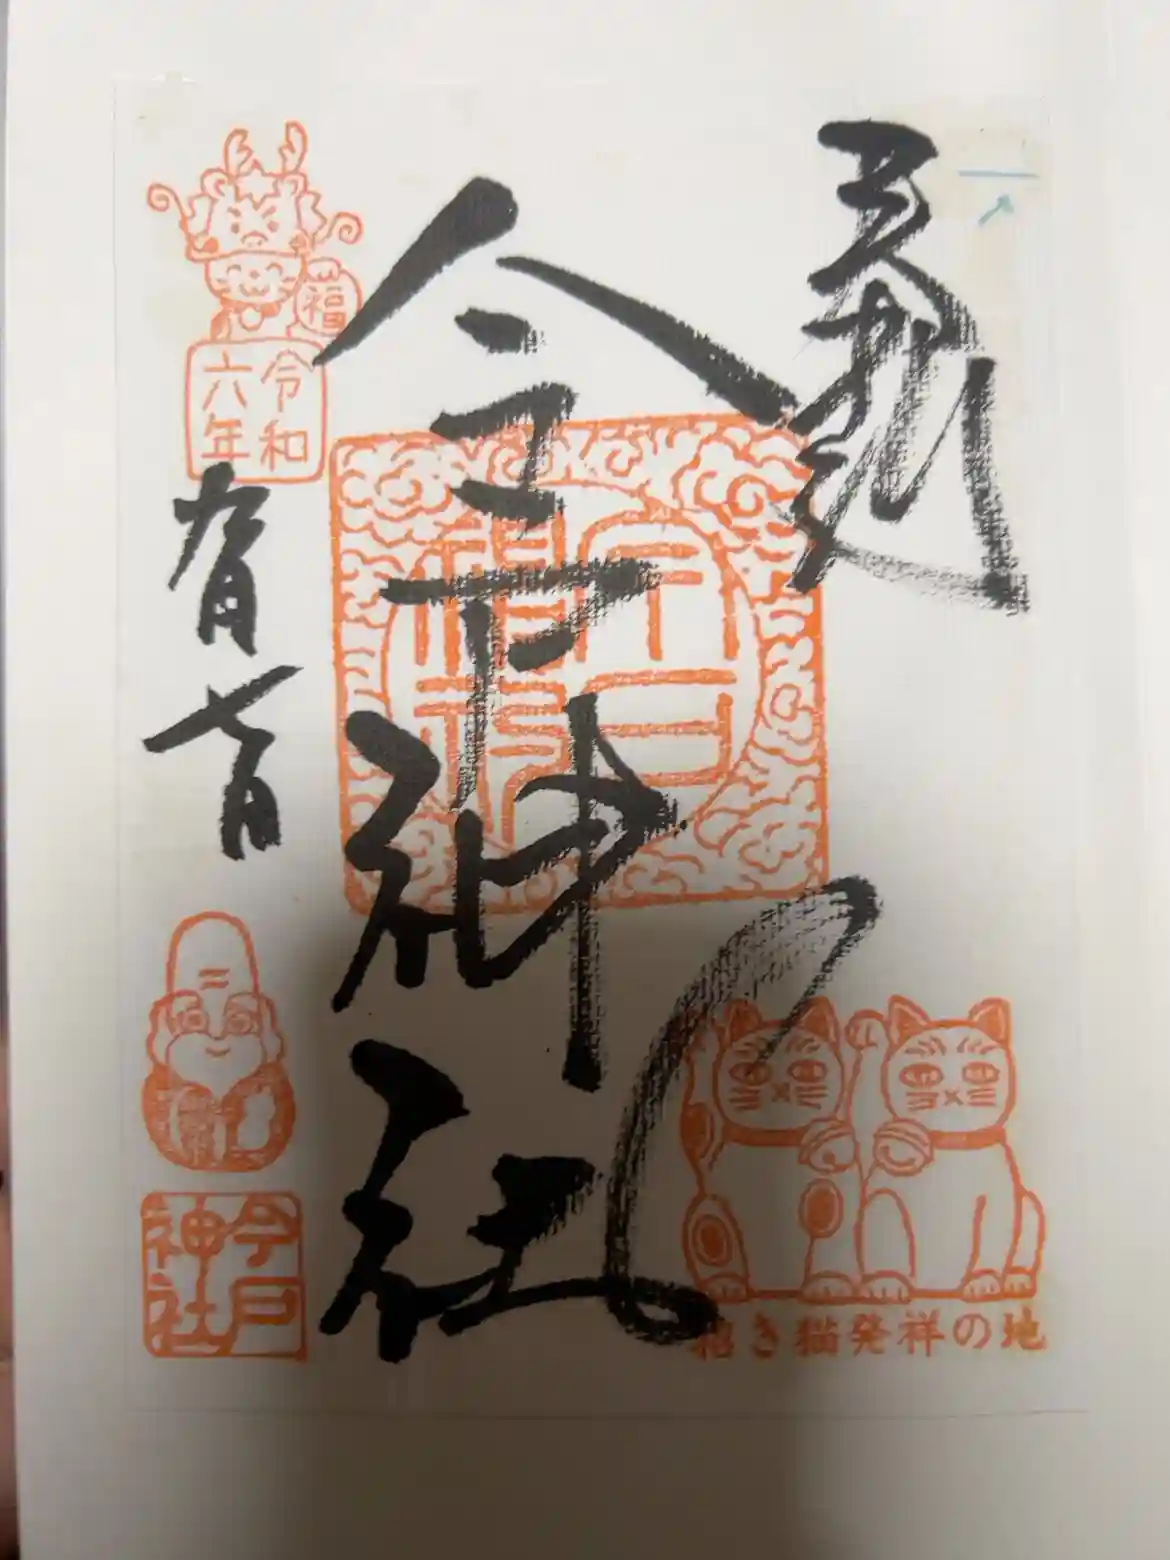 奉拝
今戸神社
福
令和
六年
九月
七日
今戸
神社
招き猫発祥の地